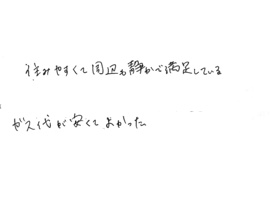 住みやすくて周辺も静かで満足している
ガス代が安くてよかった